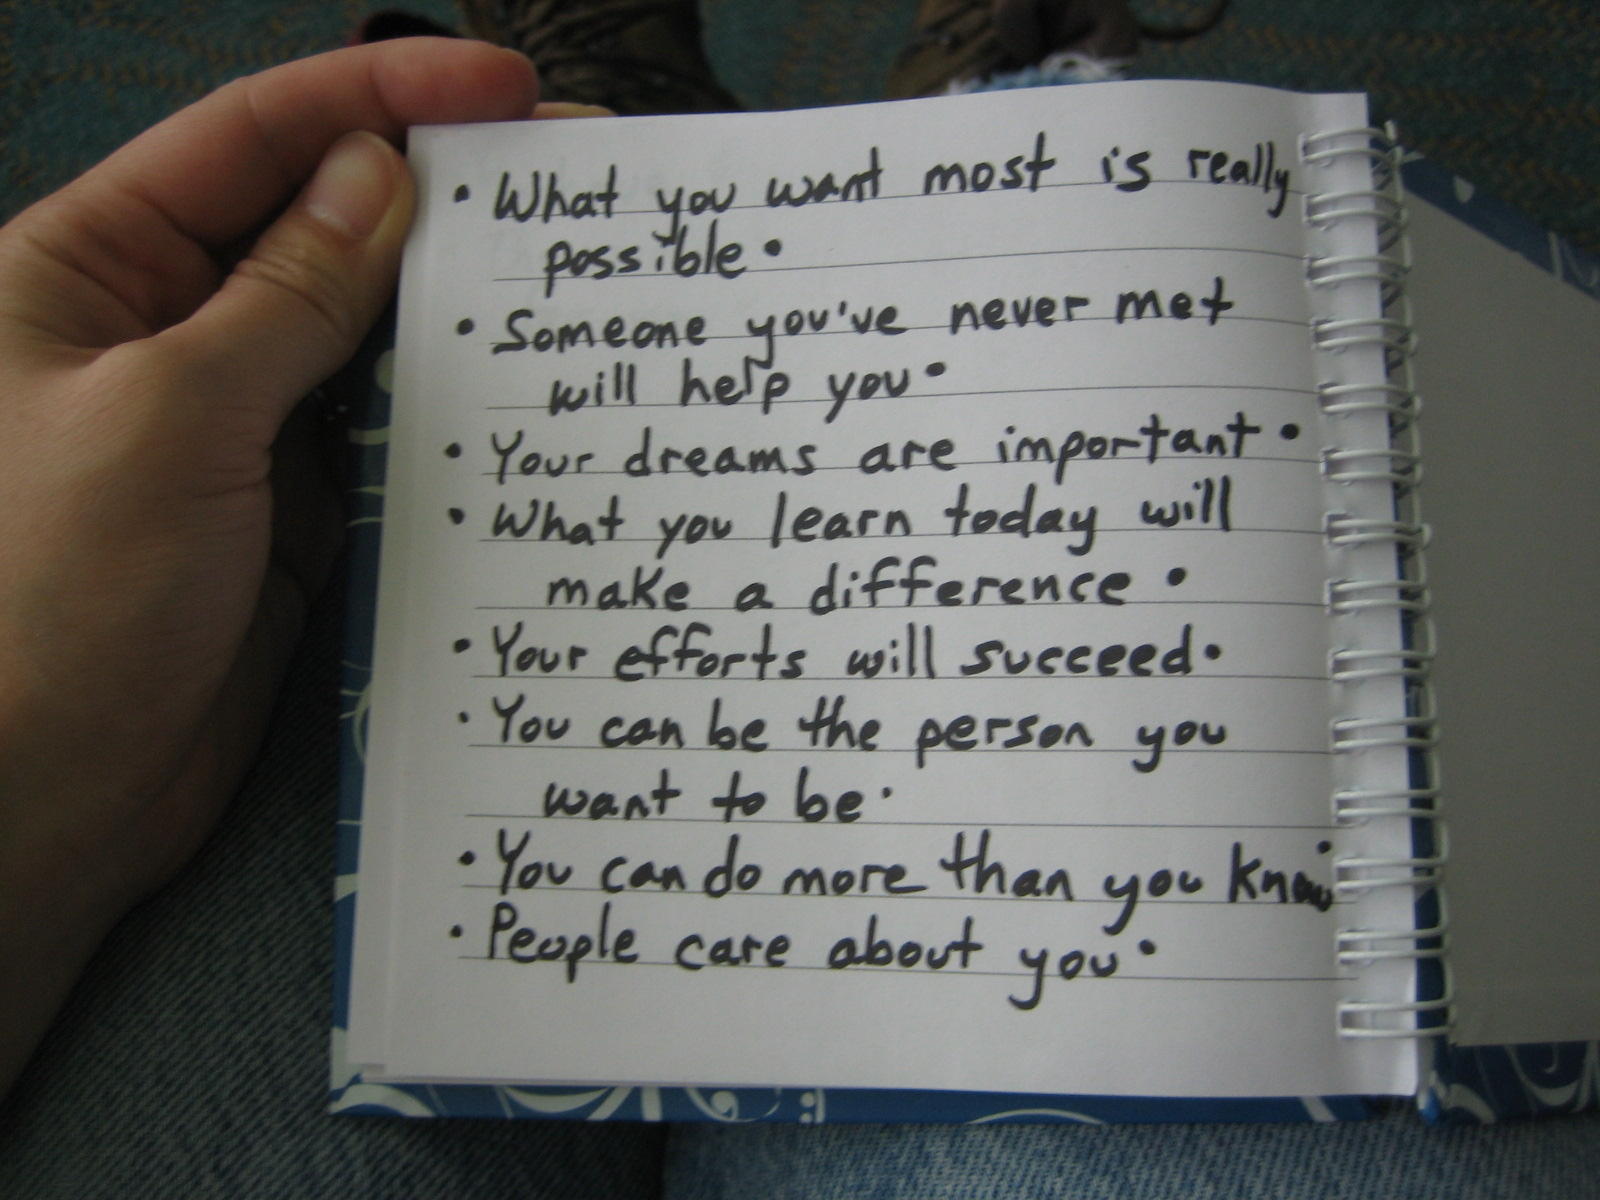 • What you want most is really
possible.
• Someone you've never met
will help you.
• Your dreams are important.
• What you learn today will
make a difference.
• Your efforts will succeed.
• You can be the person you
want to be.
• You can do more than you know.
• People care about you.